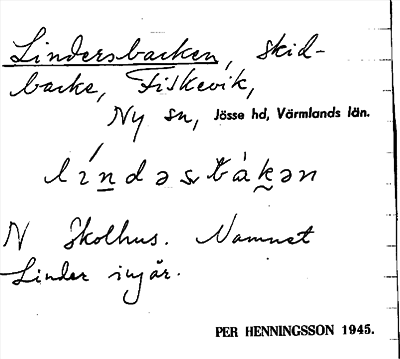 Lindersbacken, skid-
backe, Fiskevik,
Ny sn, Jösse hd, Värmlands län.
líndəsbàkən
N Skolhus. Namnet
Linder ingår.
PER HENNINGSSON 1945.